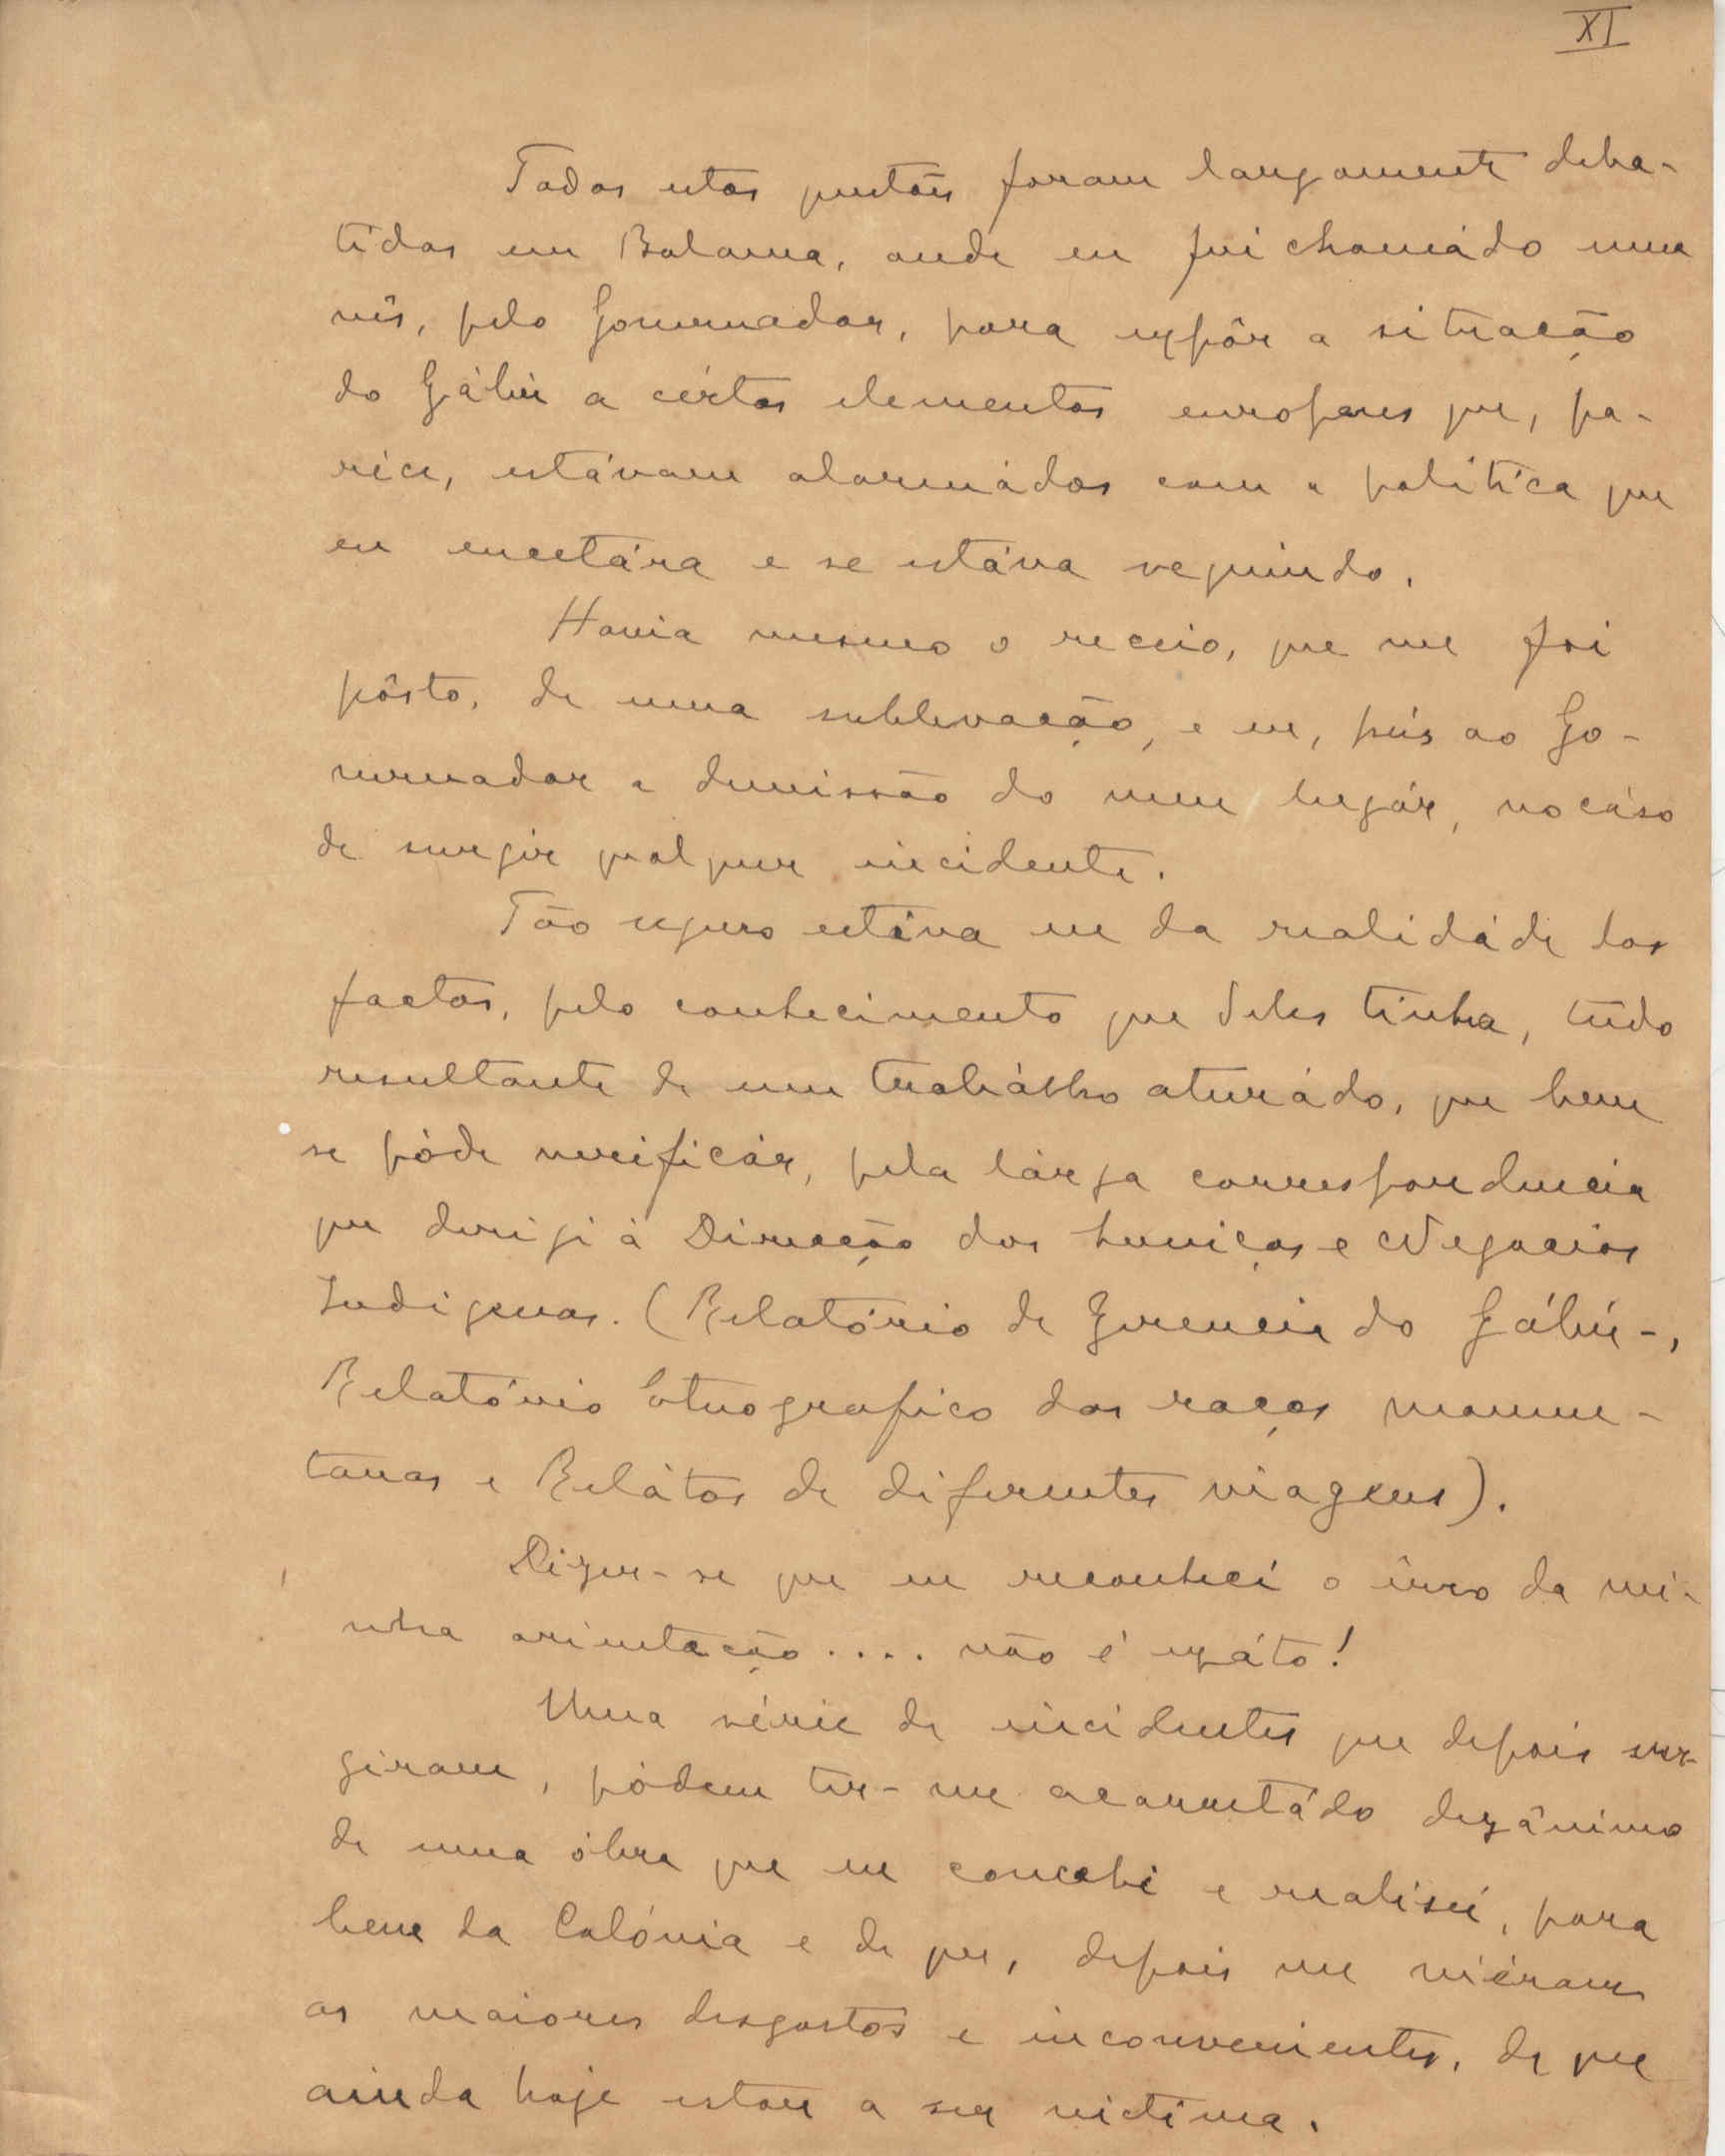 XI
Todas estas questões foram largamente deba-
tidas em Bolama, onde eu fui chamádo uma
vês, pelo Governador, para expôr a situação
do Gábú a cértos elementos europeus que, pa-
réce, estávam alarmádos com a política que
eu encetára e se estáva seguindo.
Havia mesmo o receio, que me foi
pôsto, de uma sublevação, e eu, pús ao Go-
vernador a demissão do meu lugár, no cáso
de surgir qualquer incidente.
Tão seguro estáva eu da realidáde dos
factos, pelo conhecimento que deles tinha, tudo
resultante de um trabálho aturádo, que bem
se póde verificár, pela lárga correspondencia
que dirigi á Direcção dos Serviços e Negocios
Indigenas. (Relatório de Gerencia do Gábú-,
Relatório Etnografico das raças maome-
tanas e Relátos de diferentes viagens).
Dizer-se que eu reconheci o êrro da mi-
nha orientação.... não é exáto!
Uma série de incidentes que depois sur-
giram, pódem ter-me acarretádo dezânimo
de uma óbra que eu concebi e realisei, para
bem da Colónia e de que, depois me viéram
os maiores desgostos e inconvenientes, de que
ainda hoje estou a ser victima.